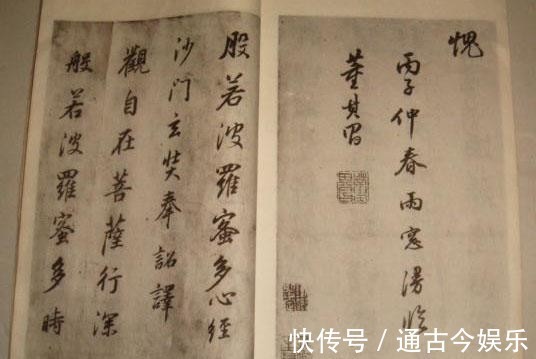 愧
丙子仲春雨窓漫臨
董其昌
般若波羅蜜多心經
沙門玄奘奉詔譯
觀自在菩薩行深
般若波羅蜜多時
快传号 / 通古今娱乐